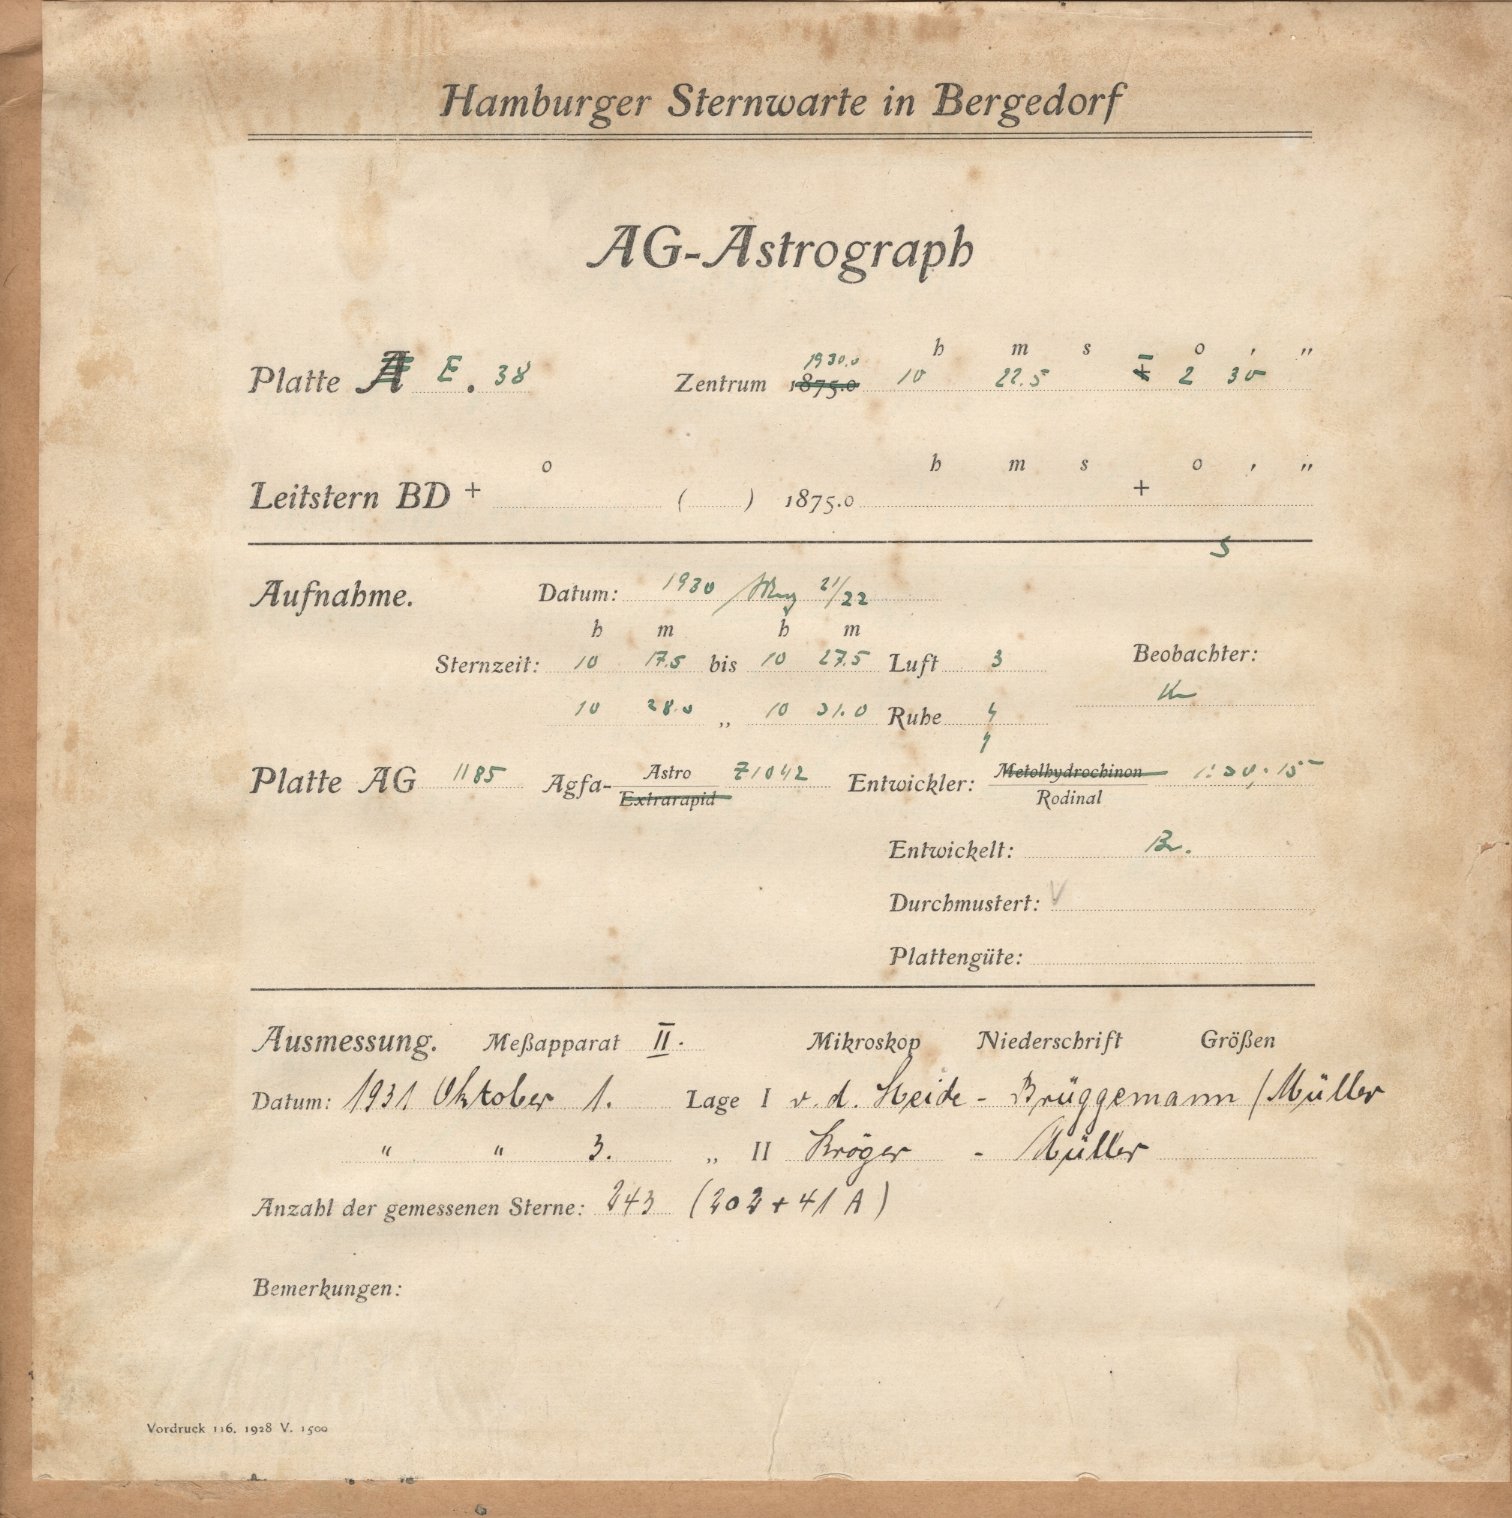 Hamburger Sternwarte in Bergedorf
AG-Astrograph
h m s o ' "
1930.0
Platte A E . 38 Zentrum 1875.0 10 22.5 - 2 30
o h m s o ' "
Leitstern BD + ( ) 1875.0 +
S
Aufnahme. Datum: 1930 21/22
h m h m
Sternzeit: 10 17.5 bis 10 27.5 Luft 3 Beobachter:
10 28.0 „ 10 31.0 Ruhe 4
Platte AG 1185 Agfa- Astro Z1042 Entwickler: Metolhydrochinon 1:20, 15
Extrarapid Rodinal
Entwickelt: Br.
Durchmustert: V
Plattengüte:
Ausmessung. Meßapparat II. Mikroskop Niederschrift Größen
Datum: 1931 Oktober 1. Lage I v. d. Heide - Brüggemann / Müller
" " 3. „ II Kröger - Müller
Anzahl der gemessenen Sterne: 243 (202 + 41 A)
Bemerkungen:
Vordruck 116. 1928 V. 1500